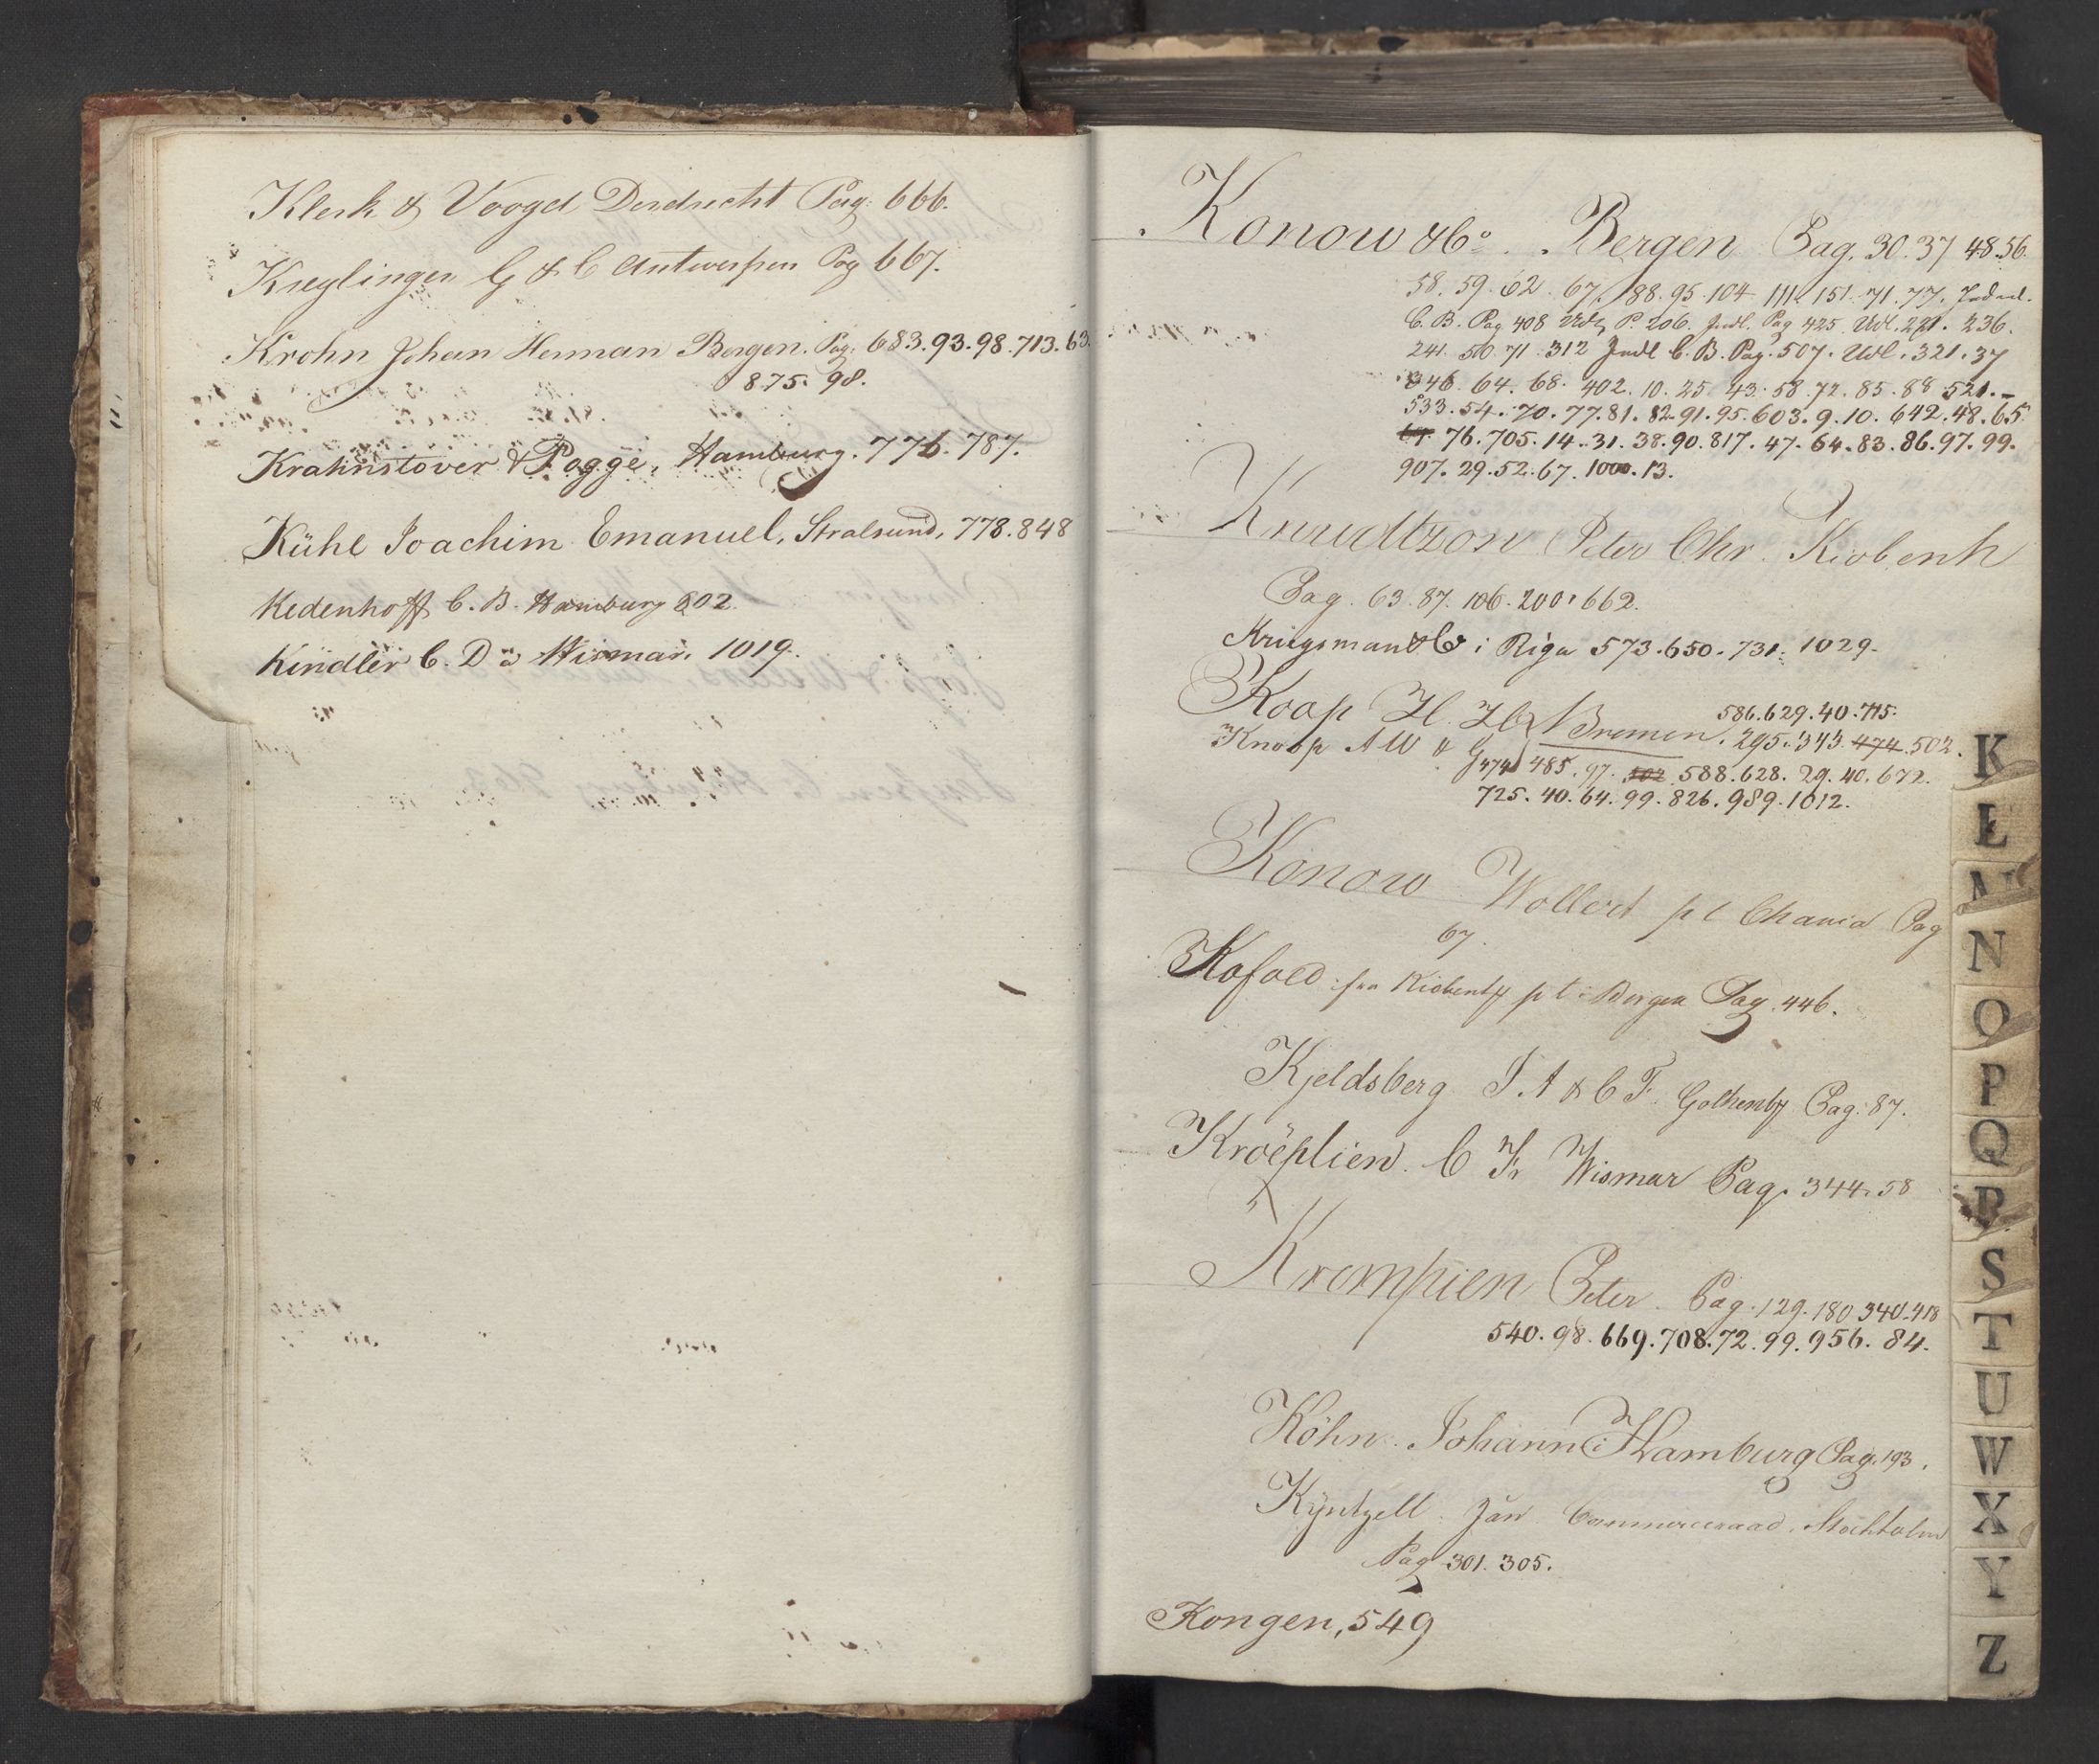 Klerk & Voogd Dordrecht Pag: 666.
Kreglinger G & C Antwerpen Pag 667.
Krohn Johan Herman Bergen. Pag. 683.93.98.713.63.
875. 98.
Krahnstover & Pogge, Hamburg. 776. 787.
Kühl Joachim Emanuel, Stralsund, 778.848
Kedenhoff C. B. Hamburg 802.
Kindler C. D. Wismar. 1019.
Konow & Co. Bergen Pag. 30. 37 48.56.
58. 59. 62. 67. 88. 95. 104 111. 151. 71. 77.
C. B. Pag 408 Udl P. 206. Indl. Pag 425. Udl. 221. 236.
241. 50. 71. 312 Indl C. B. Pag. 507. Udl. 321. 37
346. 64. 68. 402. 10. 25. 43. 58. 72. 85. 88 521. –
533. 54. 70. 77. 81. 82. 91. 95. 603. 9. 10. 642. 48. 65
76. 705. 14. 31. 38. 90. 817. 47. 64. 83. 86. 97. 99.
907. 29. 52. 67. 1000. 13.
Knudtzon Peter Chr. Kiobenh
Pag. 63. 87. 106. 200. 662.
Kriegsman & Co i Riga 573. 650. 731. 1029.
586. 629. 40. 715.
Koop H. H. Bremen. 295. 343. 474. 502.
Knoop A W & G 474 485. 97. 502 588. 628. 29. 40. 672.
725. 40. 64. 99. 826. 989. 1012.
Konow Wollert p t Chania Pag
67.
Kofoed fra Kiobenh p t Bergen Pag. 446.
Kjeldsberg J. A & C F. Gothenbg Pag. 87.
Kröeplien. C Fr Wismar Pag. 344. 58
Krempien Peter. Pag. 129. 180. 340. 418
540. 98. 669. 708. 72. 99. 956. 84.
Köhn. Johann i Hamburg Pag. 193.
Kÿntzell Jån Commerceraad. Stockholm
Pag 301. 305.
Kongen, 549
K
L
M
N
O
P
Q
R
S
T
U
W
X
Y
Z